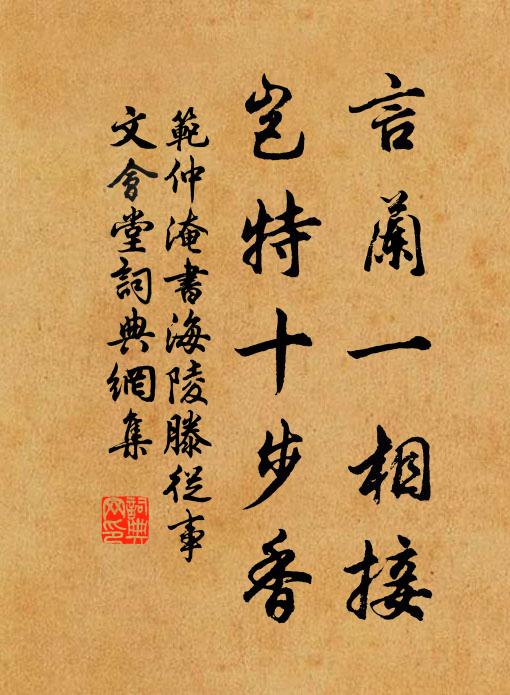 言蘭一相接
豈特十步香
範仲淹書海陵滕從事
文會堂詞典網集
詞典
网印